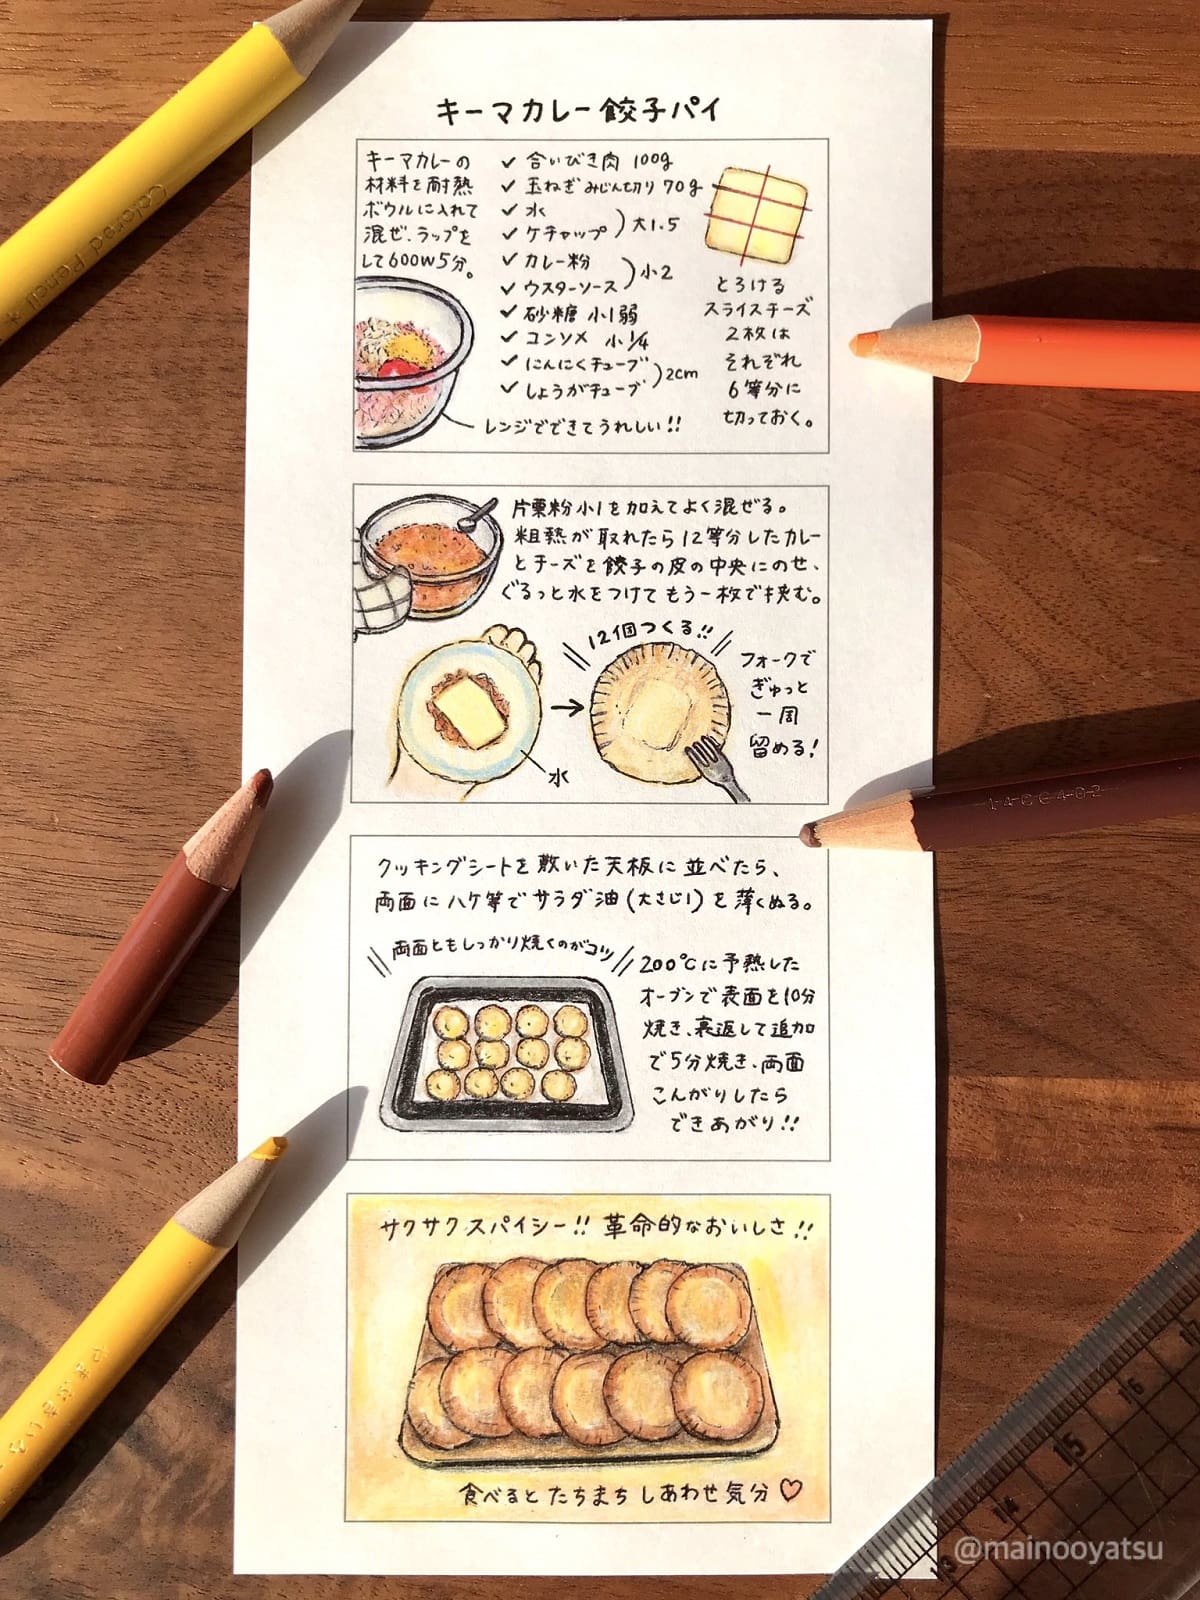 キーマカレー餃子パイ
キーマカレーの
材料を耐熱
ボウルに入れて
混ぜ、ラップを
して600W5分。
✓ 合いびき肉 100g
✓ 玉ねぎ みじん切り 70g
✓ 水
✓ ケチャップ ) 大1.5
✓ カレー粉
✓ ウスターソース ) 小2
✓ 砂糖 小1弱
✓ コンソメ 小1/4
✓ にんにくチューブ
✓ しょうがチューブ ) 2cm
レンジでできてうれしい!!
とろける
スライスチーズ
2枚は
それぞれ
6等分に
切っておく。
片栗粉小1を加えてよく混ぜる。
粗熱が取れたら12等分したカレー
とチーズを餃子の皮の中央にのせ、
ぐるっと水をつけてもう一枚で挟む。
水
12個つくる!!
フォークで
ぎゅっと
一周
留める!
クッキングシートを敷いた天板に並べたら、
両面にハケ等でサラダ油(大さじ1)を薄くぬる。
両面ともしっかり焼くのがコツ
200℃に予熱した
オーブンで表面を10分
焼き、裏返して追加
で5分焼き、両面
こんがりしたら
できあがり!!
サクサクスパイシー!! 革命的なおいしさ!!
食べるとたちまちしあわせ気分♡
Colored Pencil
14CC402
16
15
14
13
@mainooyatsu